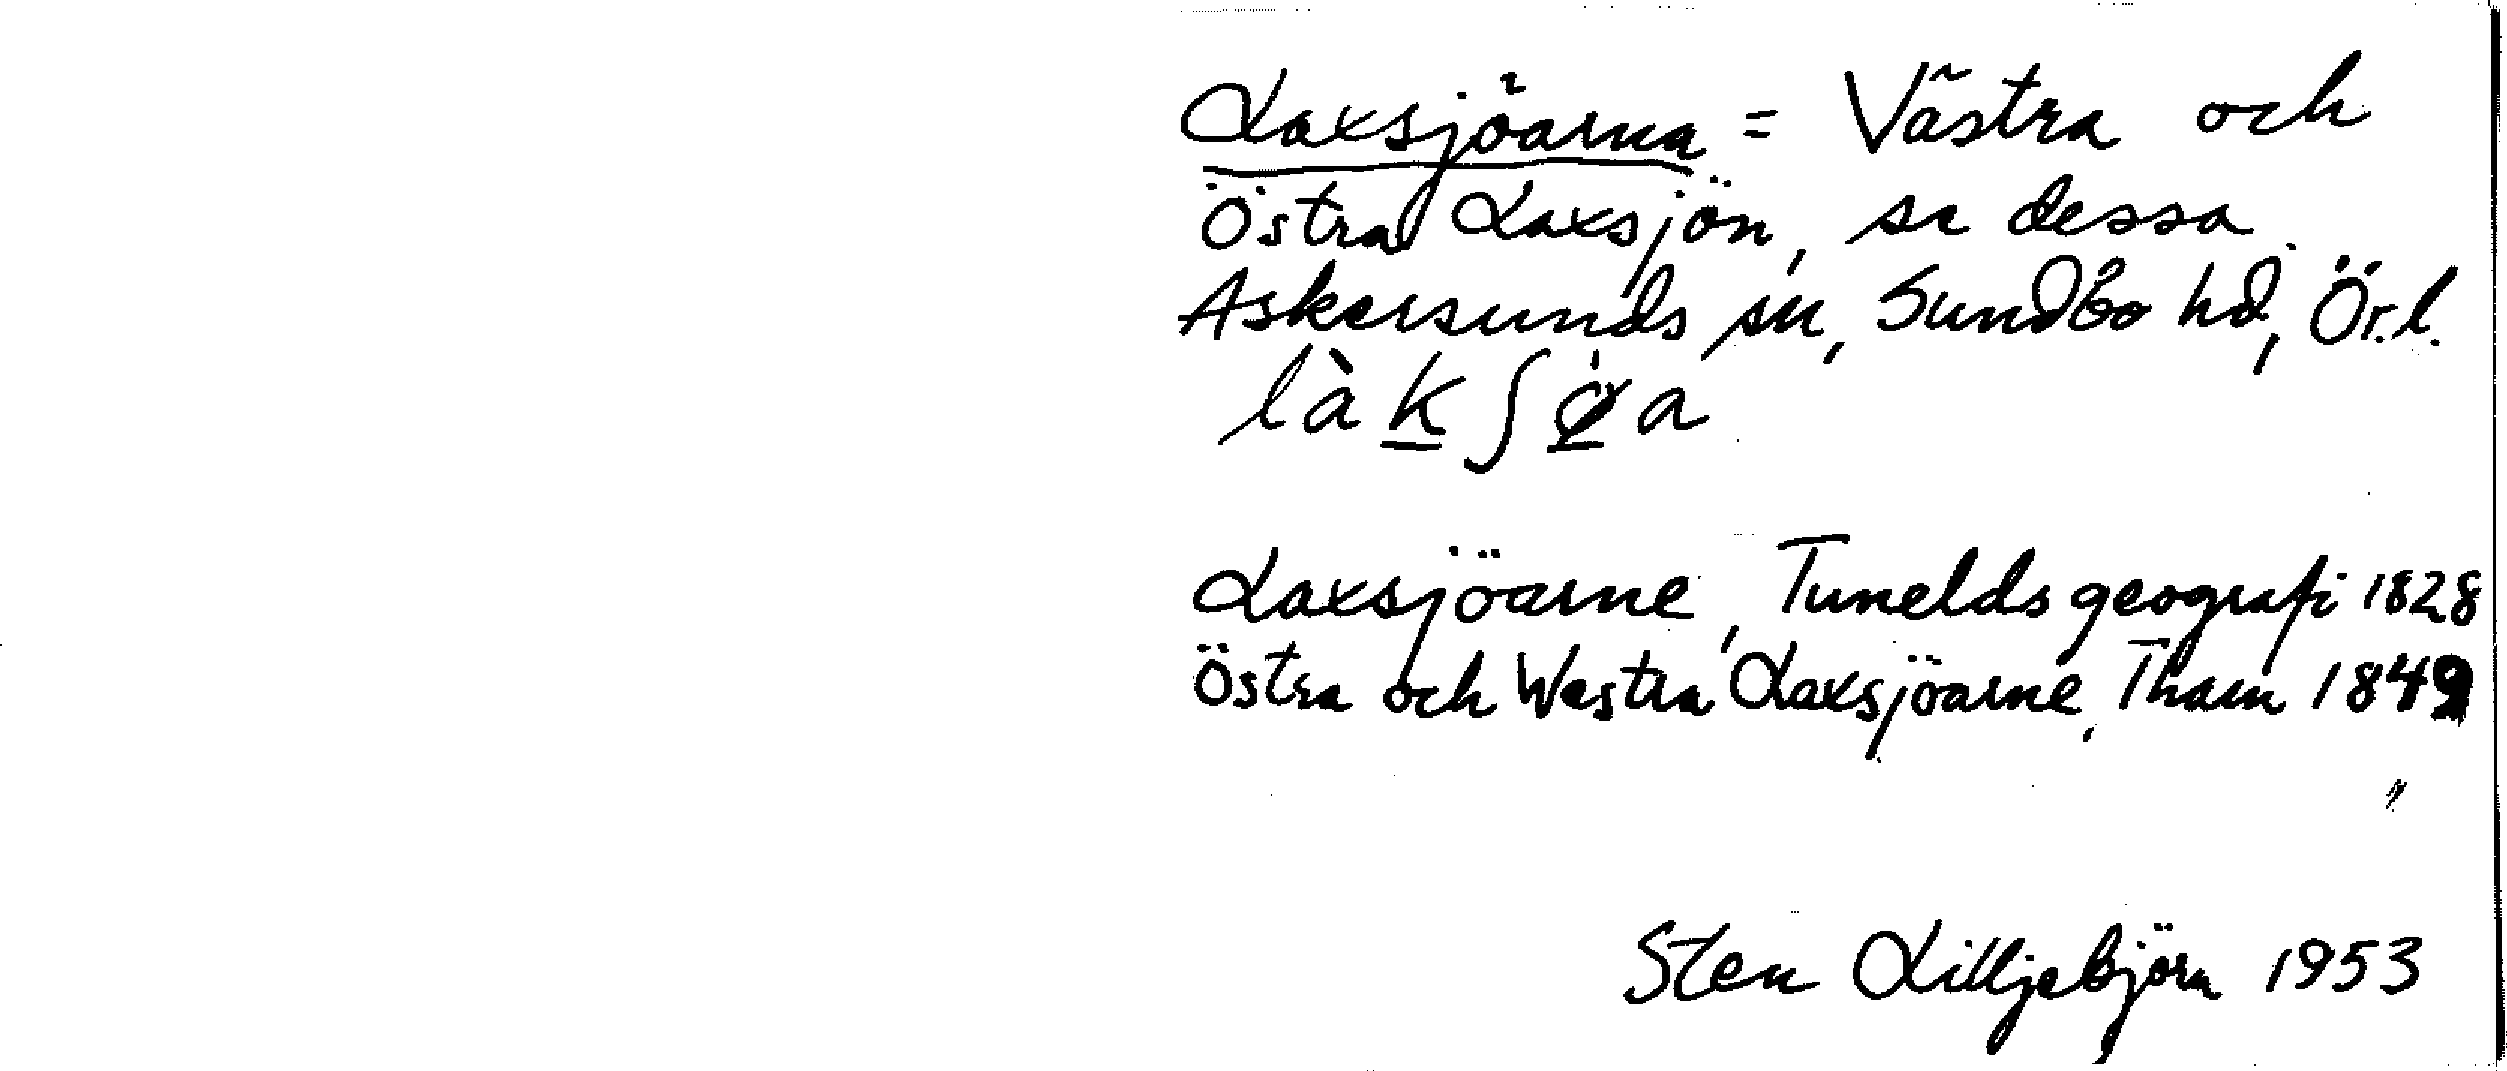 Laxsjöarna = Västra och
Östra Laxsjön, se dessa
Askersunds sn, Sundbo hd, Ör.l.
Laxsjöarne, Tunelds geografi 1828
Östra och Westra Laxsjöarne, Tham 1849
"
Sten Lilljebjörn 1953